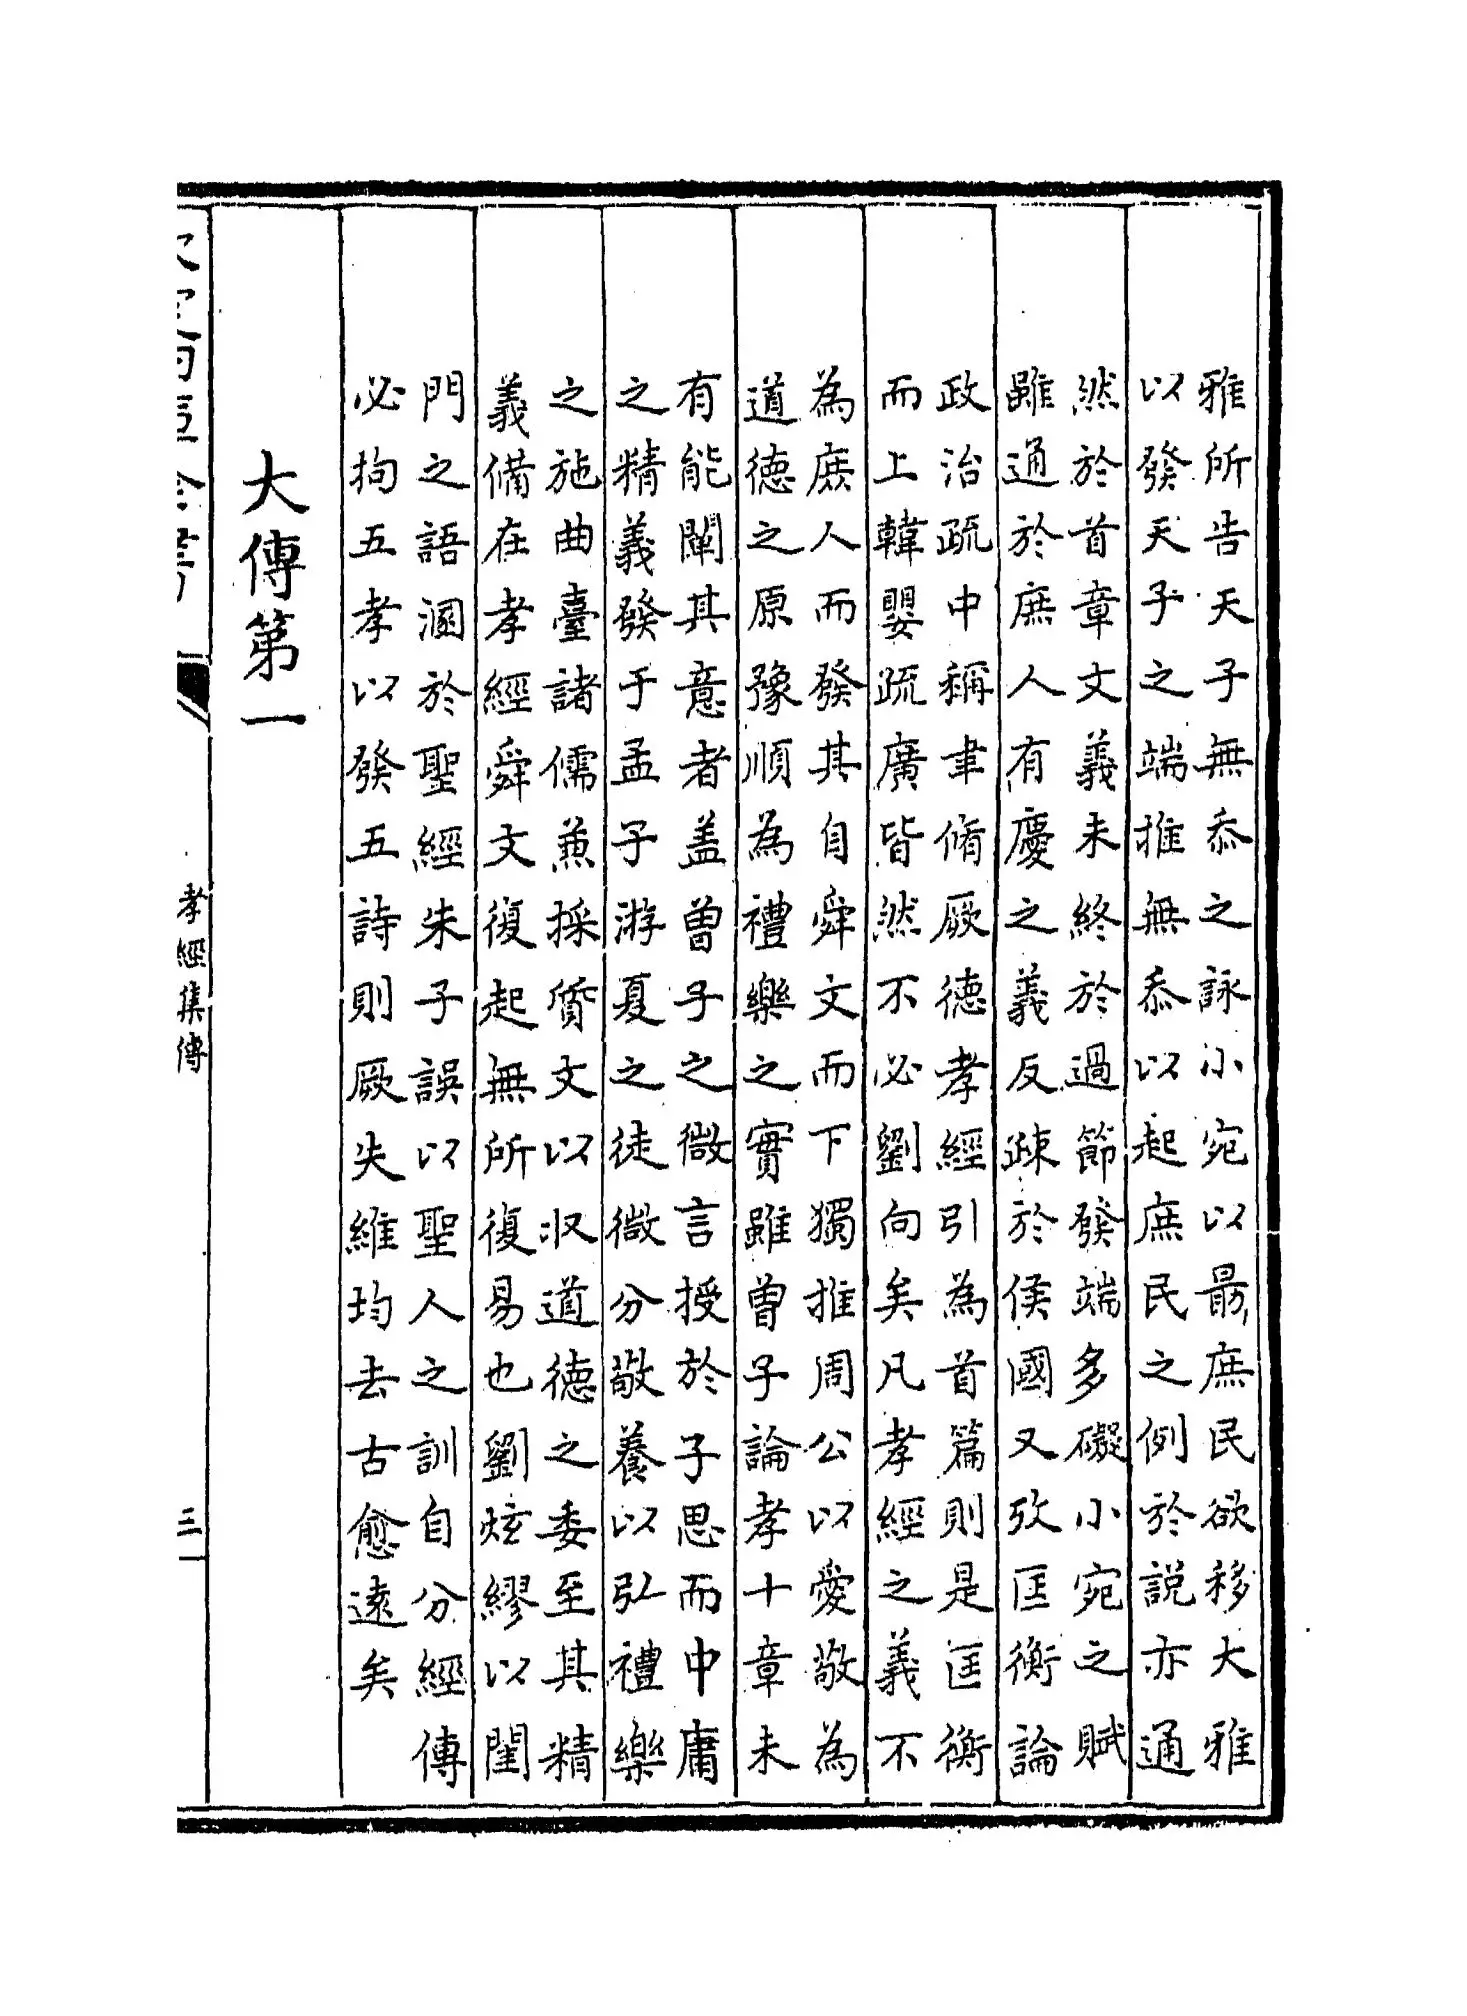 雅所告天子無忝之詠小宛以朂庶民欲移大雅
以發天子之端推無忝以起庶民之例於說亦通
然於首章文義未終於過節發端多礙小宛之賦
雖通於庶人有慶之義反疎於侯國又攷匡衡論
政治疏中稱聿脩厥德孝經引為首篇則是匡衡
而上韓嬰疏廣皆然不必劉向矣凡孝經之義不
為庶人而發其自舜文而下獨推周公以愛敬為
道德之原豫順為禮樂之實雖曽子論孝十章未
有能闡其意者盖曽子之微言授於子思而中庸
之精義發于孟子游夏之徒微分敬養以弘禮樂
之施曲臺諸儒兼採質文以収道德之委至其精
義備在孝經舜文復起無所復易也劉炫繆以閨
門之語溷於聖經朱子誤以聖人之訓自分經傳
必拘五孝以發五詩則厥失維均去古愈遠矣
大傳第一
欽定四庫全書
孝經集傳
三